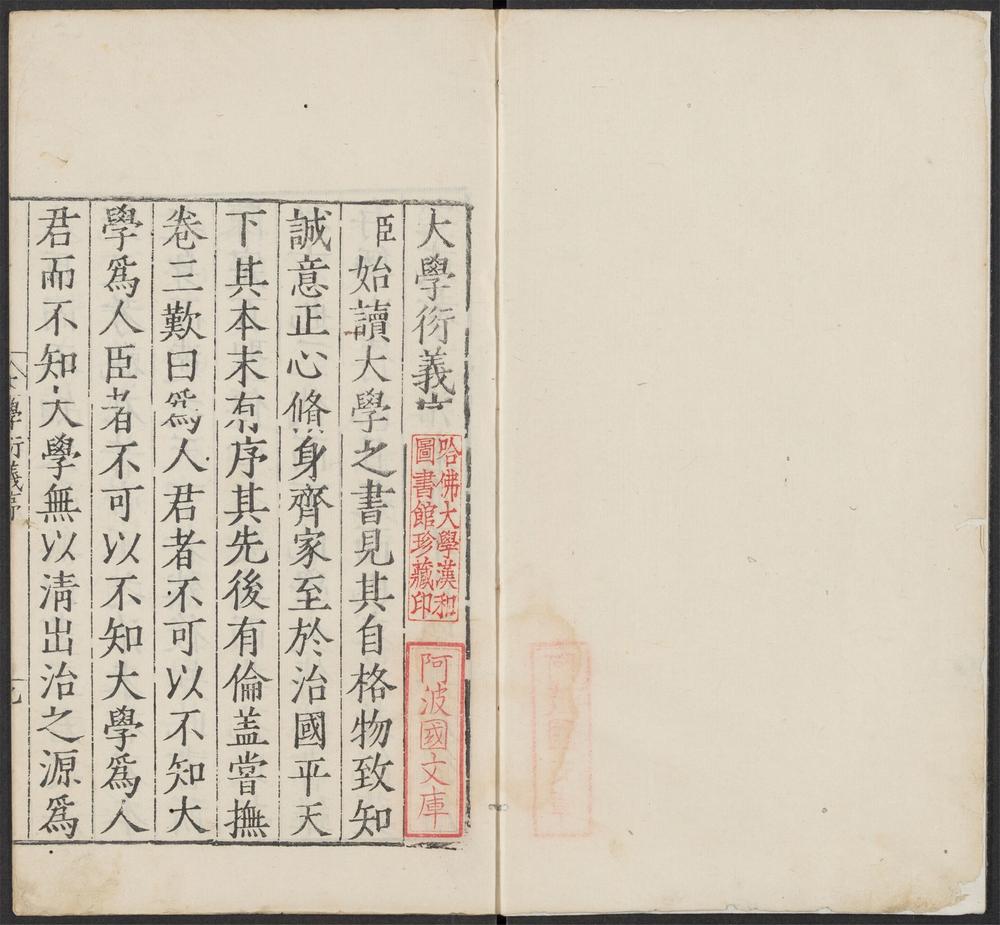 大學衍義序
臣始讀大學之書見其自格物致知
誠意正心脩身齊家至於治國平天
下其本末有序其先後有倫蓋嘗撫
卷三歎曰為人君者不可以不知大
學為人臣者不可以不知大學為人
君而不知大學無以清出治之源為
大學衍義序
哈佛大學漢和
圖書館珍藏印
阿波國文庫